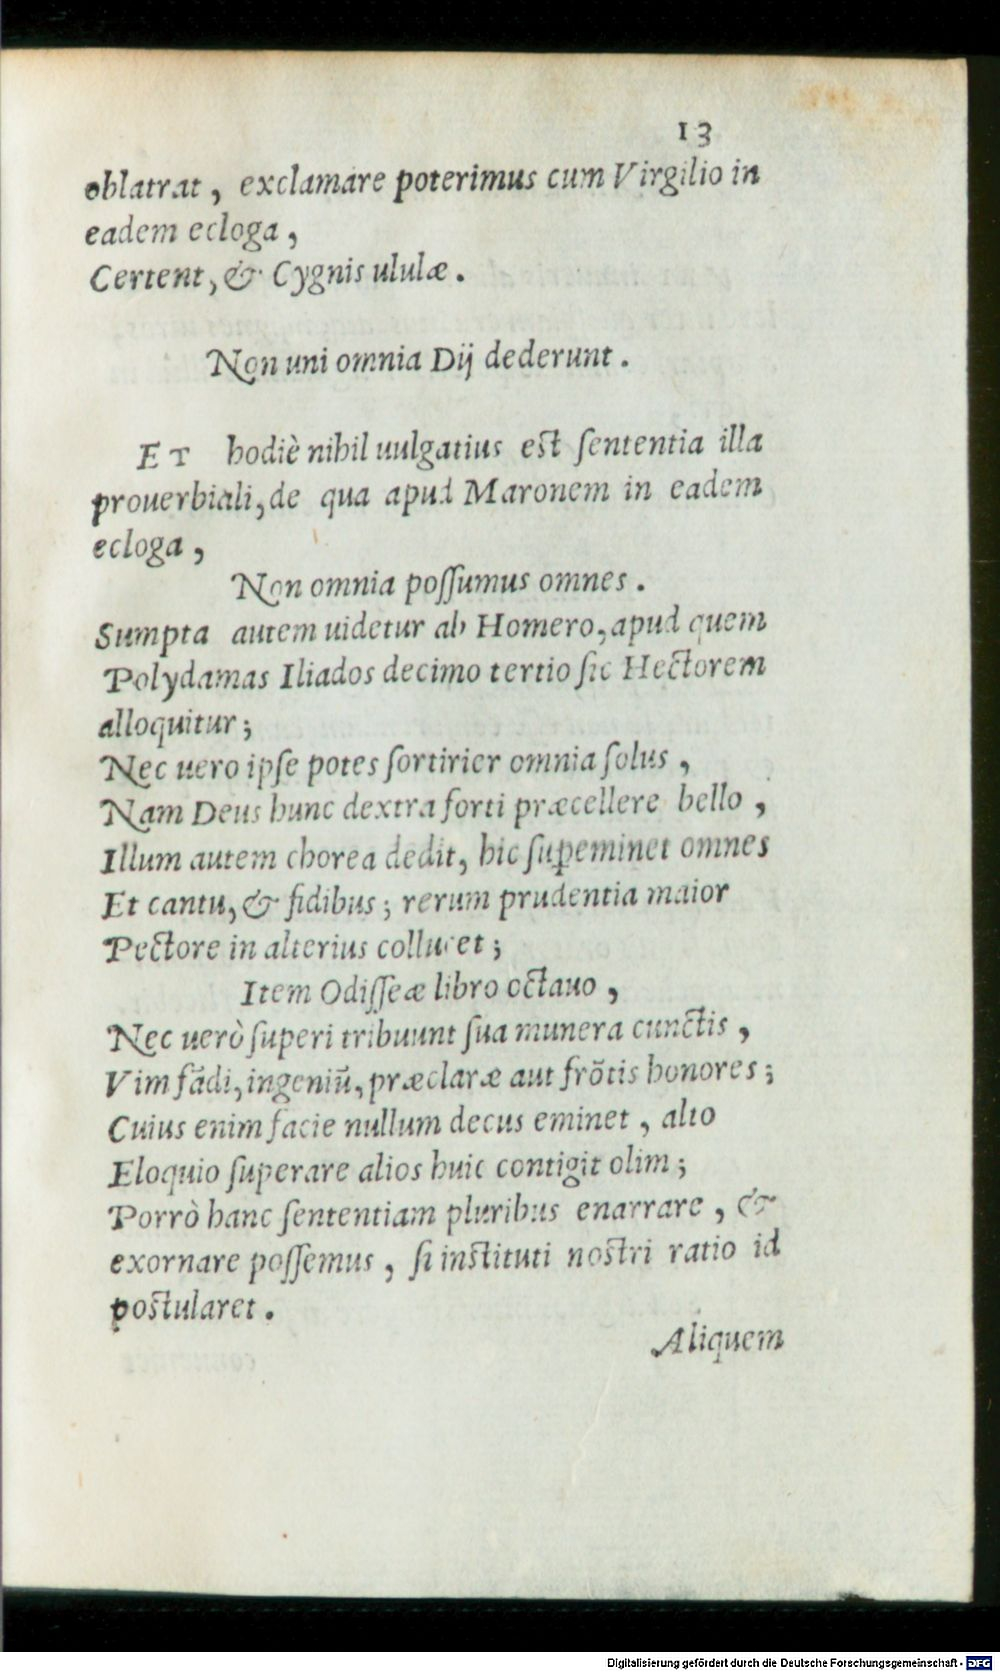 13
oblatrat, exclamare poterimus cum Virgilio in
eadem ecloga,
Certent, & Cygnis ululæ.
Non uni omnia Dij dederunt.
ET hodiè nihil uulgatius est ſententia illa
prouerbiali, de qua apud Maronem in eadem
ecloga,
Non omnia poſſumus omnes.
Sumpta autem uidetur ab Homero, apud quem
Polydamas Iliados decimo tertio ſic Hectorem
alloquitur;
Nec uero ipſe potes ſortirier omnia ſolus,
Nam Deus hunc dextra forti præcellere bello,
Illum autem chorea dedit, hic ſuꝑeminet omnes
Et cantu, & fidibus; rerum prudentia maior
Pectore in alterius collucet;
Item Odiſſeæ libro octauo,
Nec uerò ſuperi tribuunt ſua munera cunctis,
Vim fãdi, ingeniũ, præclaræ aut frõtis honores;
Cuius enim facie nullum decus eminet, alto
Eloquio ſuperare alios huic contigit olim;
Porrò hanc ſententiam pluribus enarrare, &
exornare poſſemus, ſi instituti nostri ratio id
postularet.
Aliquem
Digitalisierung gefördert durch die Deutsche Forschungsgemeinschaft - DFG